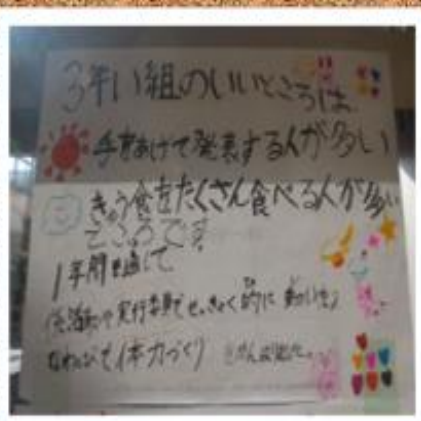 3年い組のいいところは
手をあげて発表する人が多い
きゅう食をたくさん食べる人が多い
ところです。
1年間を通して
活動や実行委員でせっきょく的に動いたり
なわとびで体力づくり